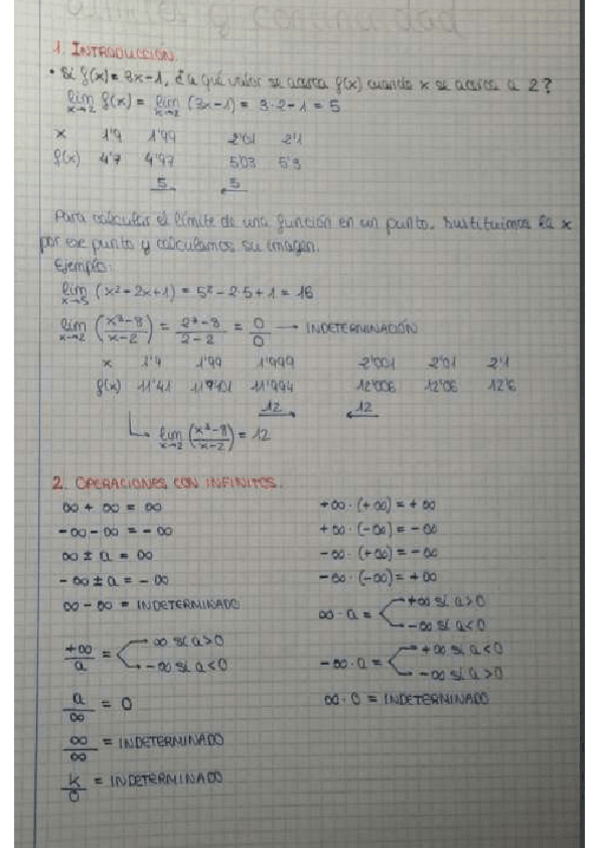 límites y continuidad
1. INTRODUCCIÓN.
• Si f(x) = 3x-1, ¿a qué valor se acerca f(x) cuando x se acerca a 2?
lim x→2 f(x) = lim x→2 (3x-1) = 3·2-1 = 5
x 1'9 1'99 2'01 2'1
f(x) 4'7 4'97 5'03 5'3
5 5
Para calcular el límite de una función en un punto, sustituimos la x
por ese punto y calculamos su imagen.
Ejemplo:
lim x→5 (x²-2x+1) = 5²-2·5+1 = 16
lim x→2 (x³-8 / x-2) = 2³-8 / 2-2 = 0/0 → INDETERMINACIÓN
x 1'9 1'99 1'999 2'001 2'01 2'1
f(x) 11'41 11'9401 11'994 12'006 12'06 12'6
12 12
lim x→2 (x³-8 / x-2) = 12
2. OPERACIONES CON INFINITOS.
∞ + ∞ = ∞ +∞·(+∞) = +∞
-∞-∞ = -∞ +∞·(-∞) = -∞
∞ ± a = ∞ -∞·(+∞) = -∞
-∞ ± a = -∞ -∞·(-∞) = +∞
∞ - ∞ = INDETERMINADO ∞·a = +∞ si a>0
-∞ si a<0
+∞/a = ∞ si a>0 -∞·a = +∞ si a<0
-∞ si a<0 -∞ si a>0
a/∞ = 0 ∞·0 = INDETERMINADO
∞/∞ = INDETERMINADO
k/0 = INDETERMINADO